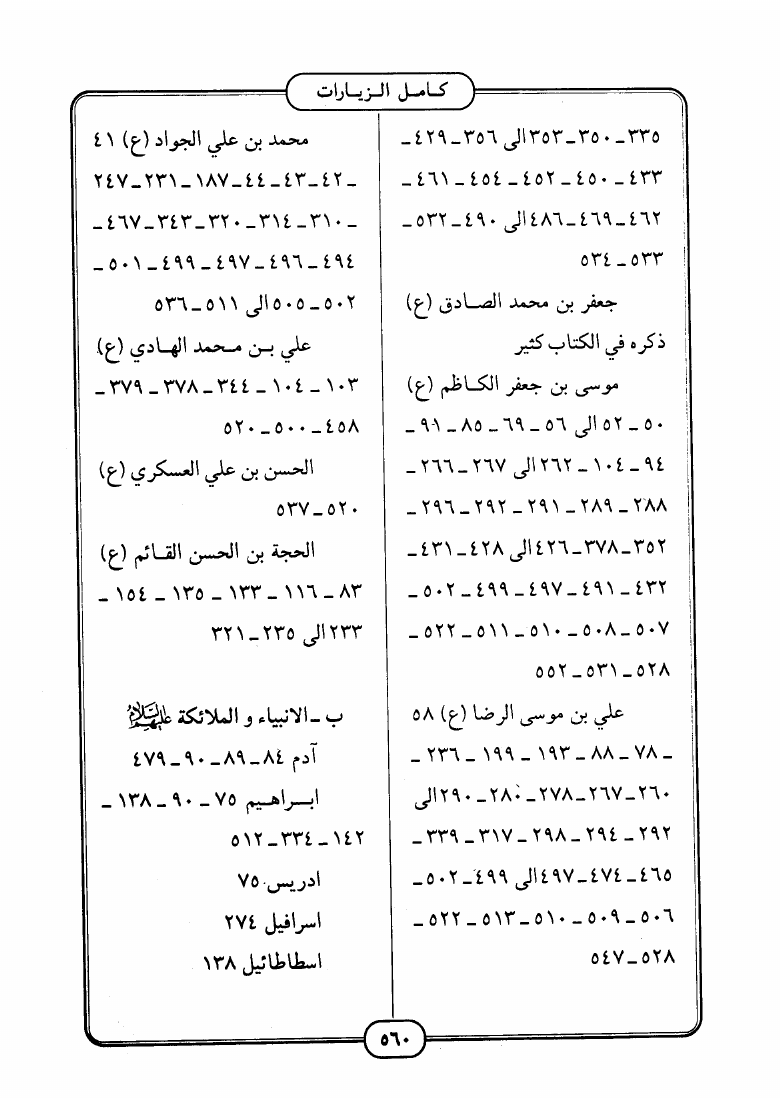 كامل الزيارات
٣٣٥ ـ ٣٥٠ ـ ٣٥٣ الى ٣٥٦ ـ ٤٢٩ ـ
٤٣٣ ـ ٤٥٠ ـ ٤٥٢ ـ ٤٥٤ ـ ٤٦١ ـ
٤٦٢ ـ ٤٦٩ ـ ٤٨٦ الى ٤٩٠ ـ ٥٣٢ ـ
٥٣٣ ـ ٥٣٤
جعفر بن محمد الصادق (ع)
ذكره في الكتاب كثير
موسى بن جعفر الكاظم (ع)
٥٠ ـ ٥٢ الى ٥٦ ـ ٦٩ ـ ٨٥ ـ ٩١ ـ
٩٤ ـ ١٠٤ ـ ٢٦٢ الى ٢٦٧ ـ ٢٦٦ ـ
٢٨٨ ـ ٢٨٩ ـ ٢٩١ ـ ٢٩٢ ـ ٢٩٦ ـ
٣٥٢ ـ ٣٧٨ ـ ٤٢٦ الى ٤٢٨ ـ ٤٣١ ـ
٤٣٢ ـ ٤٩١ ـ ٤٩٧ ـ ٤٩٩ ـ ٥٠٢ ـ
٥٠٧ ـ ٥٠٨ ـ ٥١٠ ـ ٥١١ ـ ٥٢٢ ـ
٥٢٨ ـ ٥٣١ ـ ٥٥٢
علي بن موسى الرضا (ع) ٥٨
ـ ٧٨ ـ ٨٨ ـ ١٩٣ ـ ١٩٩ ـ ٢٣٦ ـ
٢٦٠ ـ ٢٦٧ ـ ٢٧٨ ـ ٢٨٠ ـ ٢٩٠ الى
٢٩٢ ـ ٢٩٤ ـ ٢٩٨ ـ ٣١٧ ـ ٣٣٩ ـ
٤٦٥ ـ ٤٧٤ ـ ٤٩٧ الى ٤٩٩ ـ ٥٠٢ ـ
٥٠٦ ـ ٥٠٩ ـ ٥١٠ ـ ٥١٣ ـ ٥٢٢ ـ
٥٢٨ ـ ٥٤٧
محمد بن علي الجواد (ع) ٤١
ـ ٤٢ ـ ٤٣ ـ ٤٤ ـ ١٨٧ ـ ٢٣١ ـ ٢٤٧
ـ ٣١٠ ـ ٣١٤ ـ ٣٢٠ ـ ٣٤٣ ـ ٤٦٧ ـ
٤٩٤ ـ ٤٩٦ ـ ٤٩٧ ـ ٤٩٩ ـ ٥٠١ ـ
٥٠٢ ـ ٥٠٥ الى ٥١١ ـ ٥٣٦
علي بن محمد الهادي (ع)
١٠٣ ـ ١٠٤ ـ ٣٤٤ ـ ٣٧٨ ـ ٣٧٩ ـ
٤٥٨ ـ ٥٠٠ ـ ٥٢٠
الحسن بن علي العسكري (ع)
٥٢٠ ـ ٥٣٧
الحجة بن الحسن القائم (ع)
٨٣ ـ ١١٦ ـ ١٣٣ ـ ١٣٥ ـ ١٥٤ ـ
٢٣٣ الى ٢٣٥ ـ ٣٢١
ب ـ الانبياء و الملائكة عليهم السلام
آدم ٨٤ ـ ٨٩ ـ ٩٠ ـ ٤٧٩
ابراهيم ٧٥ ـ ٩٠ ـ ١٣٨ ـ
١٤٢ ـ ٣٣٤ ـ ٥١٢
ادريس ٧٥
اسرافيل ٢٧٤
اسطاطائيل ١٣٨
٥٦٠